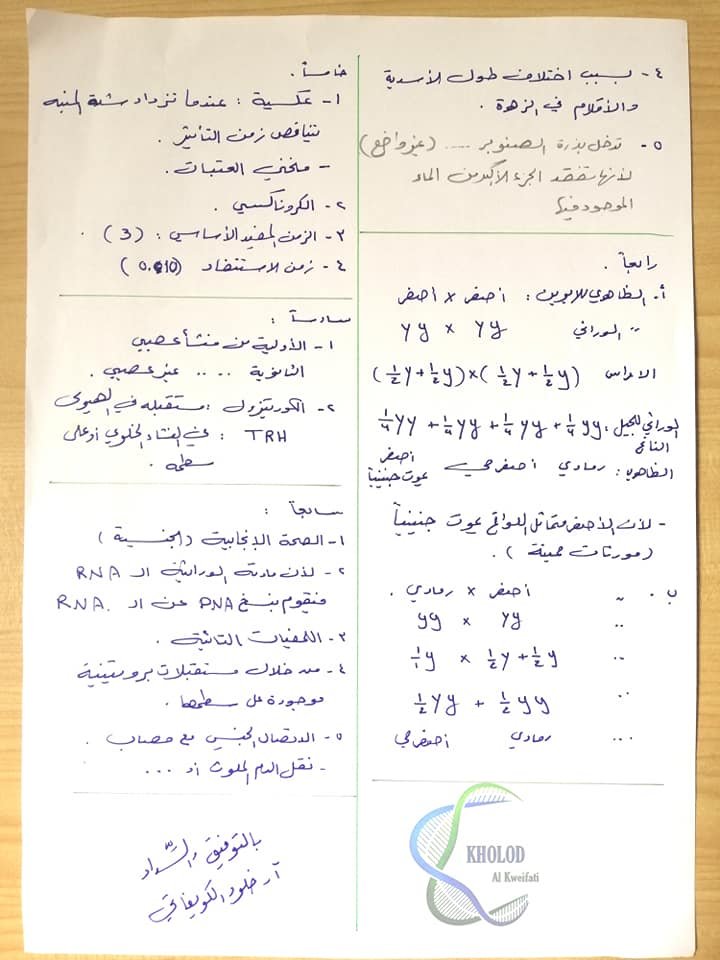 ٤- بسبب اختلاف طول الأسدية
والأقلام في الزهرة .
٥- تدخل بذرة الصنوبر .... (غير واضح)
لأنها تفقد الجزء الأكبر من الماء
الموجود فيها
رابعاً .
أ. الظاهري للأبوين : أصفر × أصفر
״ الوراثي Yy × Yy
الاعراس (½Y + ½y) × (½Y + ½y)
الوراثي للجيل الناتج : ¼YY + ¼Yy + ¼Yy + ¼yy
الظاهري : رمادي أصفر حي أصفر يموت جنينياً
- لأن الأصفر متماثل اللواقح يموت جنينياً
(مورثات مميتة) .
ب. ״ أصفر × رمادي .
״ yy × Yy
״ ¹⁄₁y × ½Y + ½y
״ ½Yy + ½yy
... رمادي أصفر حي
KHOLOD
Al Kweifati
خامساً .
١- عكسية : عندما تزداد شدة المنبه
يتناقص زمن التأثير .
- منحني العتبات .
٢- الكروناكسي .
٣- الزمن المفيد الأساسي : (3) .
٤- زمن الاستنفاد (0.010)
سادساً :
١- الأولية من منشأ عصبي
الثانوية .. .. غير عصبي .
٢- الكورتيزول : مستقبله في الهيولى
TRH : في الغشاء الخلوي أو على
سطحه .
سابعاً :
١- الصحة الإنجابية (الجنسية)
٢- لأن مادته الوراثية الـ RNA
فتقوم بنسخ DNA عن الـ RNA.
٣- اللمفيات التائية .
٤- من خلال مستقبلات بروتينية
موجودة على سطحها .
٥- الاتصال الجنسي مع مصاب .
- نقل الدم الملوث أو ...
بالتوفيق والسّداد
آ. خلود الكويفاتي